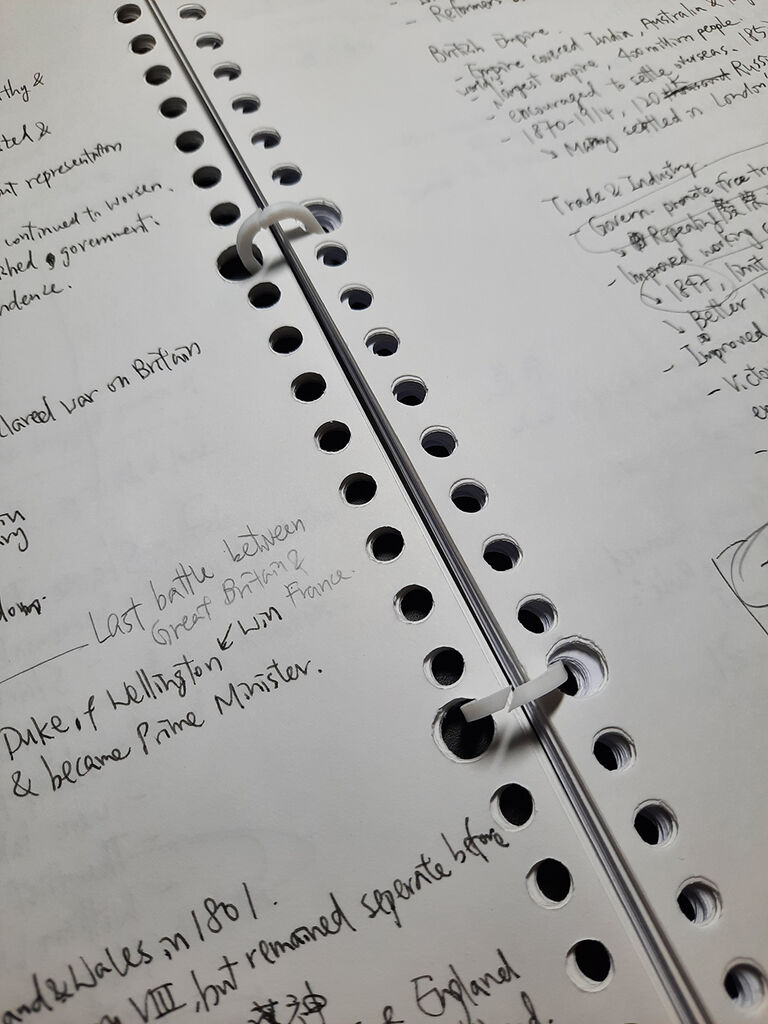 thy &
&
representation
continued to worsen.
government.
ndence.
lared war on Britain
in
Last battle between
Great Britain &
France.
win
Duke of Wellington
& became Prime Minister.
and & Wales in 1801.
VIII, but remained seperate before
神
& England
- Reformers
British Empire
- Empire covered India, Australia &
world's largest empire, 400 million people.
- encouraged to settle overseas. 185
- 1870-1914, 120 Russi
↳ Many settled in London
Trade & Industry
- Govern. promote free tra
↳ Repealing
- Improved working
↳ 1847, limit
↳ Better
- Improved
- Victo